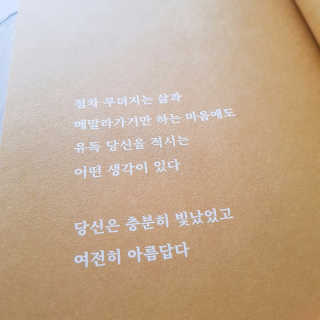 점차 무뎌지는 삶과
메말라가기만 하는 마음에도
유독 당신을 적시는
어떤 생각이 있다
당신은 충분히 빛났었고
여전히 아름답다